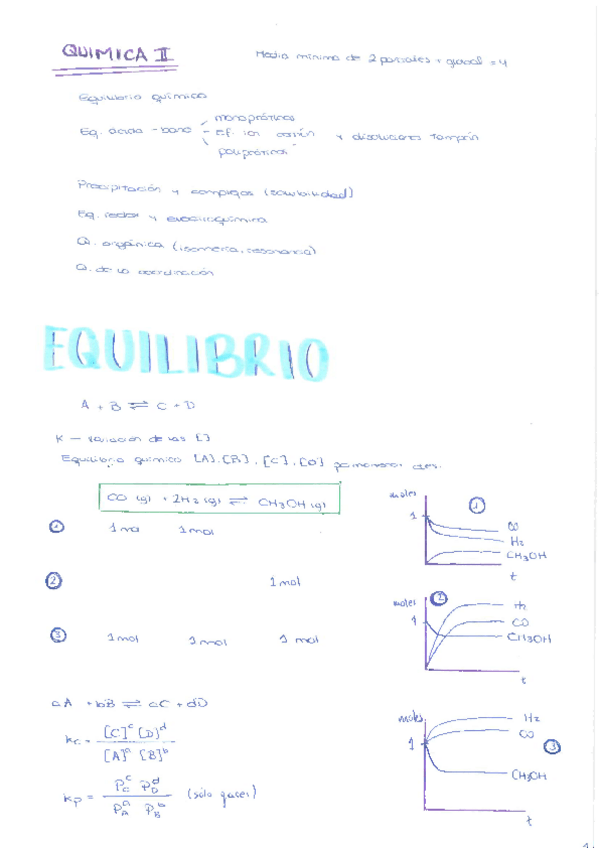 QUIMICA II
Media mínima de 2 parciales + global = 4
Equilibrio químico
monopróticos
Eq. ácido - base - Ef. ion común y disoluciones tampón
polipróticos
Precipitación y complejos (solubilidad)
Eq. redox y electroquímica
Q. orgánica (isomería, resonancia)
Q. de la coordinación
EQUILIBRIO
A + B ⇌ C + D
K - variación de las []
Equilibrio químico [A], [B], [C], [D] permanecen ctes.
CO (g) + 2H2 (g) ⇌ CH3OH (g)
① 1 mol 1 mol
② 1 mol
③ 1 mol 1 mol 1 mol
moles ①
1
CO
H2
CH3OH
t
moles ②
1
H2
CO
CH3OH
t
aA + bB ⇌ cC + dD
Kc = [C]^c [D]^d / [A]^a [B]^b
Kp = P_C^c P_D^d / P_A^a P_B^b (sólo gases)
moles
1
H2
CO
③
CH3OH
t